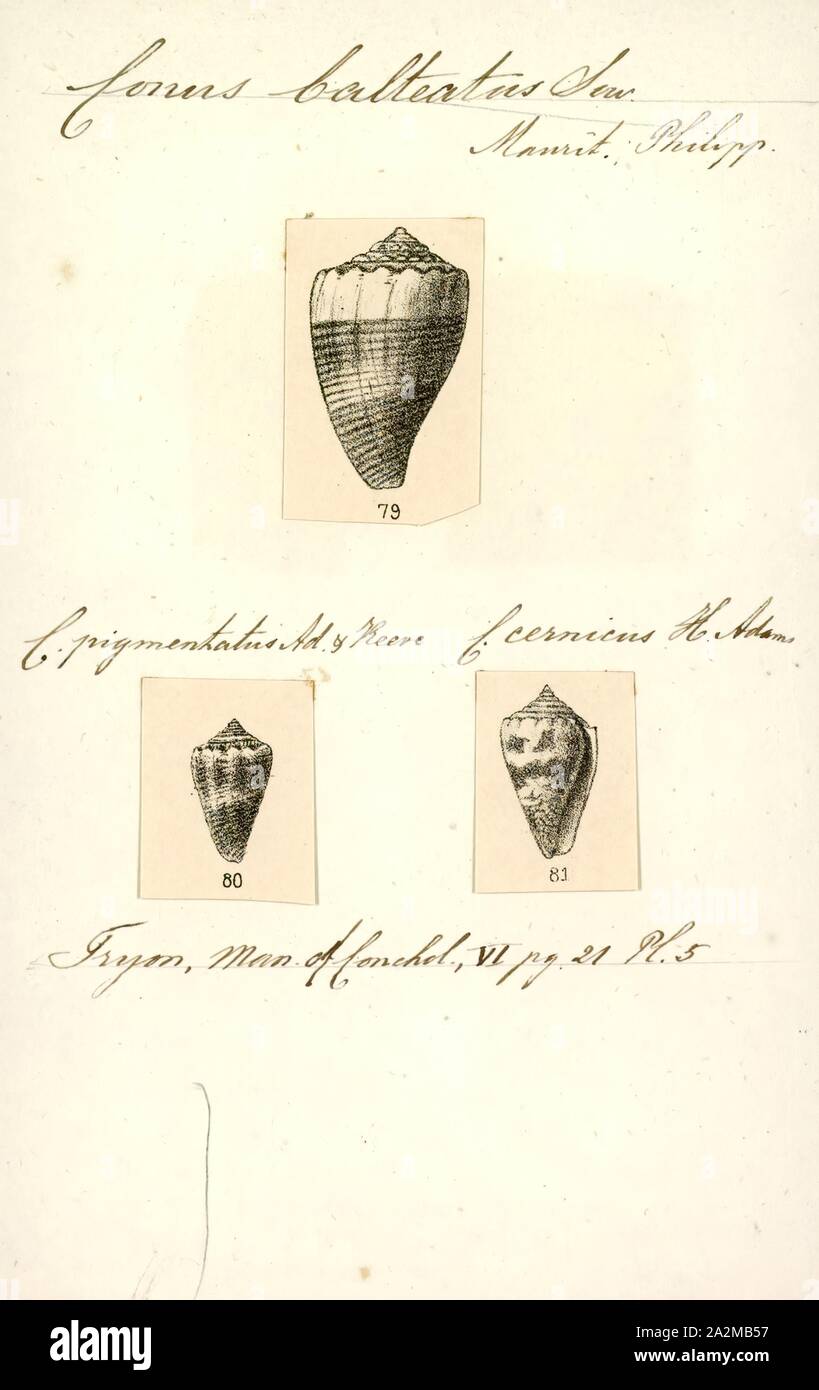 Conus balteatus Sow.
Maurit., Philipp.
79
C. pigmentatus Ad. & Reeve
C. cernicus H. Adams
80
81
Tryon, Man. of Conchol., VI pg. 21 Pl. 5
alamy
Image ID: 2A2MB57
www.alamy.com